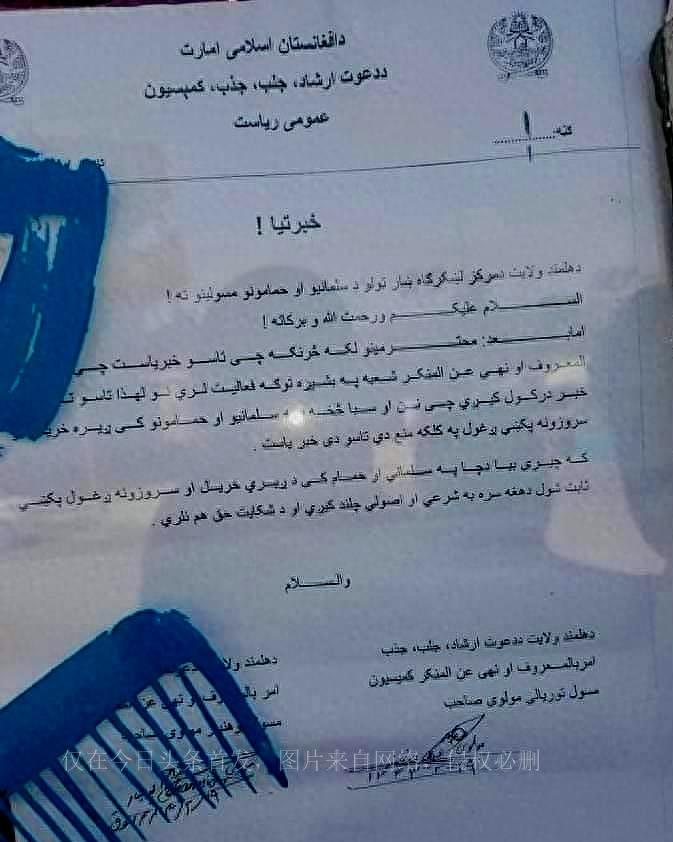 دافغانستان اسلامی امارت
ددعوت ارشاد، جلب، جذب، کمېسیون
عمومی ریاست
ګڼه: 1
1
خبرتیا !
دهلمند ولایت دمرکز لښکرګاه ښار ټولو د سلمانیو او حمامونو مسولینو ته !
السلام علیکم ورحمت الله و برکاته !
امابعد: محترمینو لکه څرنګه چی تاسو خبریاست چی
المعروف او نهی عن المنکر شعبه په بشپړه توګه فعالیت لري نو لهذا تاسو ته
خبر درکول کیږي چی نن او سبا څخه په سلمانیو او حمامونو کی ږیره خریل
سروزونه پکښې ږغول په کلکه منع دي تاسو دی خبر یاست .
که چیری بیا دچا په سلمانی او حمام کی د ږیري خریل او سروزونه ږغول پکښې
ثابت شول دهغه سره به شرعي او اصولي چلند کیږي او د شکایت حق هم نلري .
والسلام
دهلمند ولایت ددعوت ارشاد، جلب، جذب
امربالمعروف او نهی عن المنکر کمیسیون
مسول نوریالی مولوی صاحب
دهلمند ولا
امر بالمعروف او نهی عن
مسول
صاحب
仅在今日头条首发，图片来自网络，侵权必删